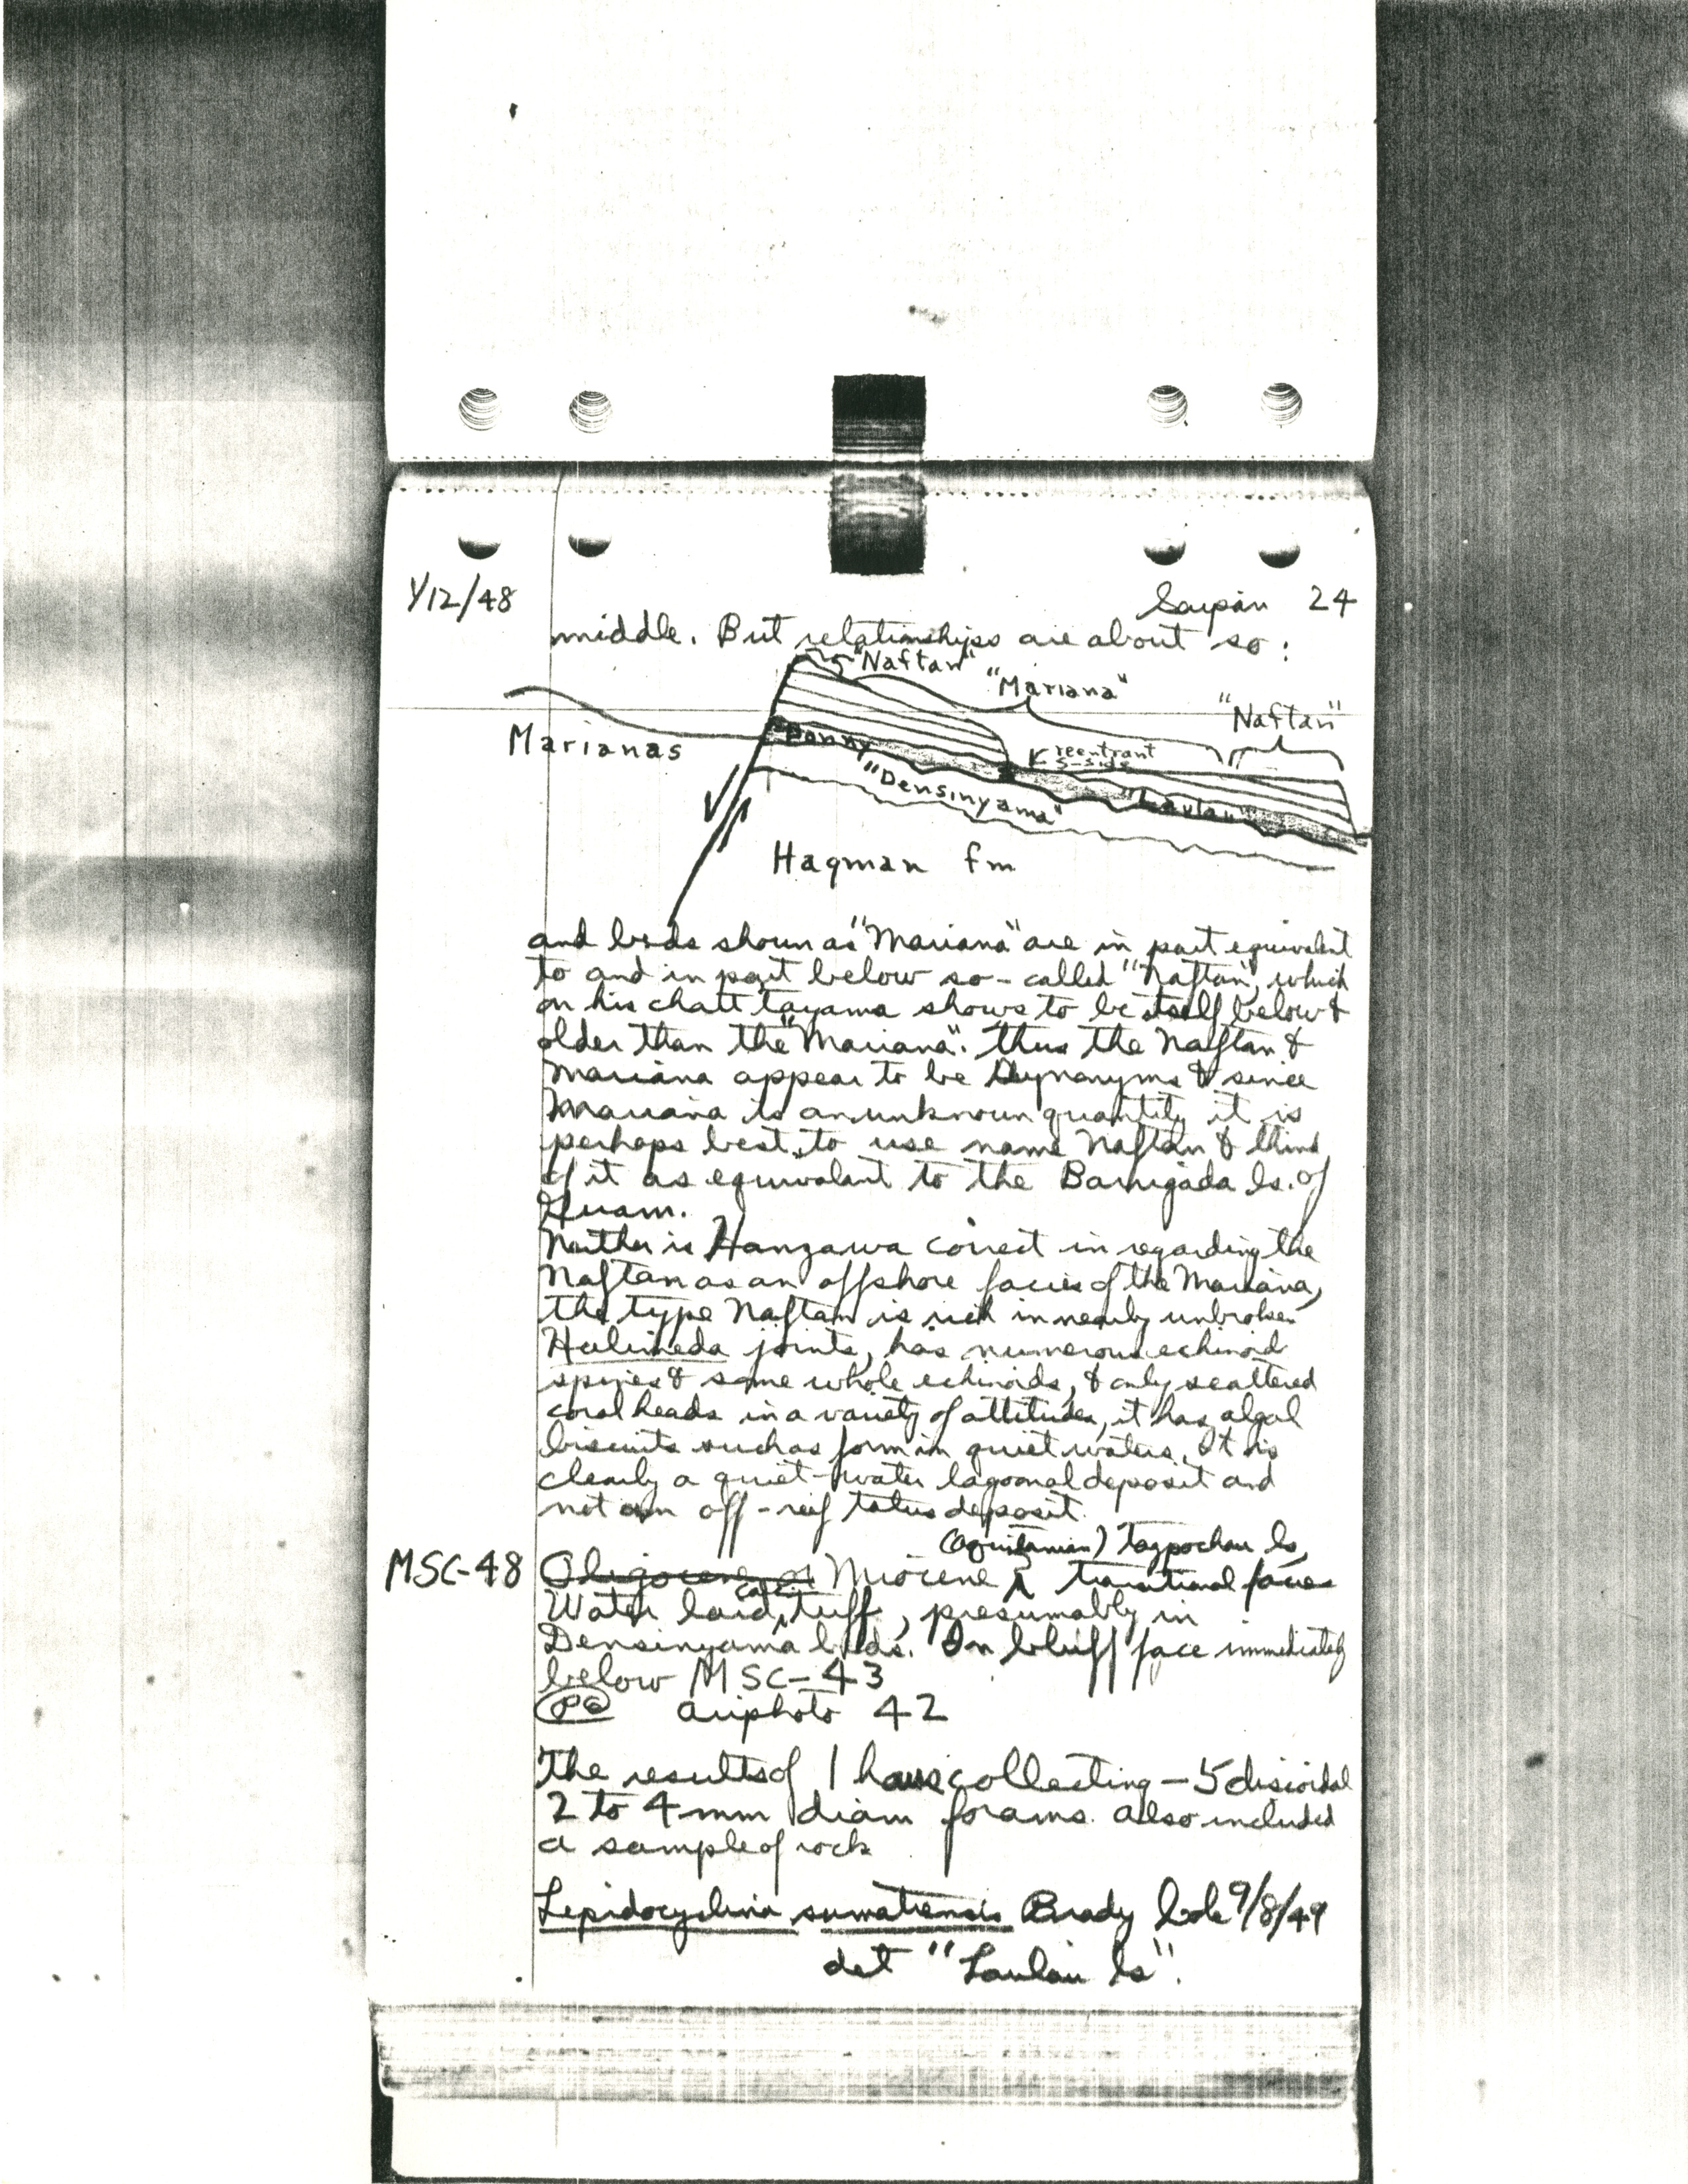 1/12/48 Saipan 24
middle. But relationships are about so:
"Naftan"
"Mariana"
"Naftan"
Marianas
"Donny
reentrant
S-side
"Densinyama"
"Laulau"
Hagman fm
and beds shown as "Mariana" are in part equivalent
to and in part below so-called "Naftan", which
on his chart Tayama shows to be itself below &
older than the "Mariana". Thus the Naftan &
Mariana appear to be synonyms & since
Mariana is an unknown quantity it is
perhaps best to use name Naftan & think
of it as equivalent to the Barrigada ls. of
Guam.
Neither is Hanzawa correct in regarding the
Naftan as an offshore facies of the Mariana,
the type Naftan is rich in nearly unbroken
Halimeda joints, has numerous echinoid
spines & some whole echinoids, & only scattered
coral heads in a variety of attitudes, it has algal
biscuits such as form in quiet waters. It is
clearly a quiet-water lagoonal deposit and
not an off-reef talus deposit.
(Aquitanian) Tagpochau ls,
MSC-48 Oligocene or Miocene transitional facies
Water laid calc. tuff, presumably in
Densinyama beds. In bluff face immediately
below MSC-43
airphoto 42
The results of 1 hours collecting - 5 discoidal
2 to 4 mm diam forams. Also included
a sample of rock
Lepidocyclina sumatrensis Brady 9/8/49
det "Laulau ls".